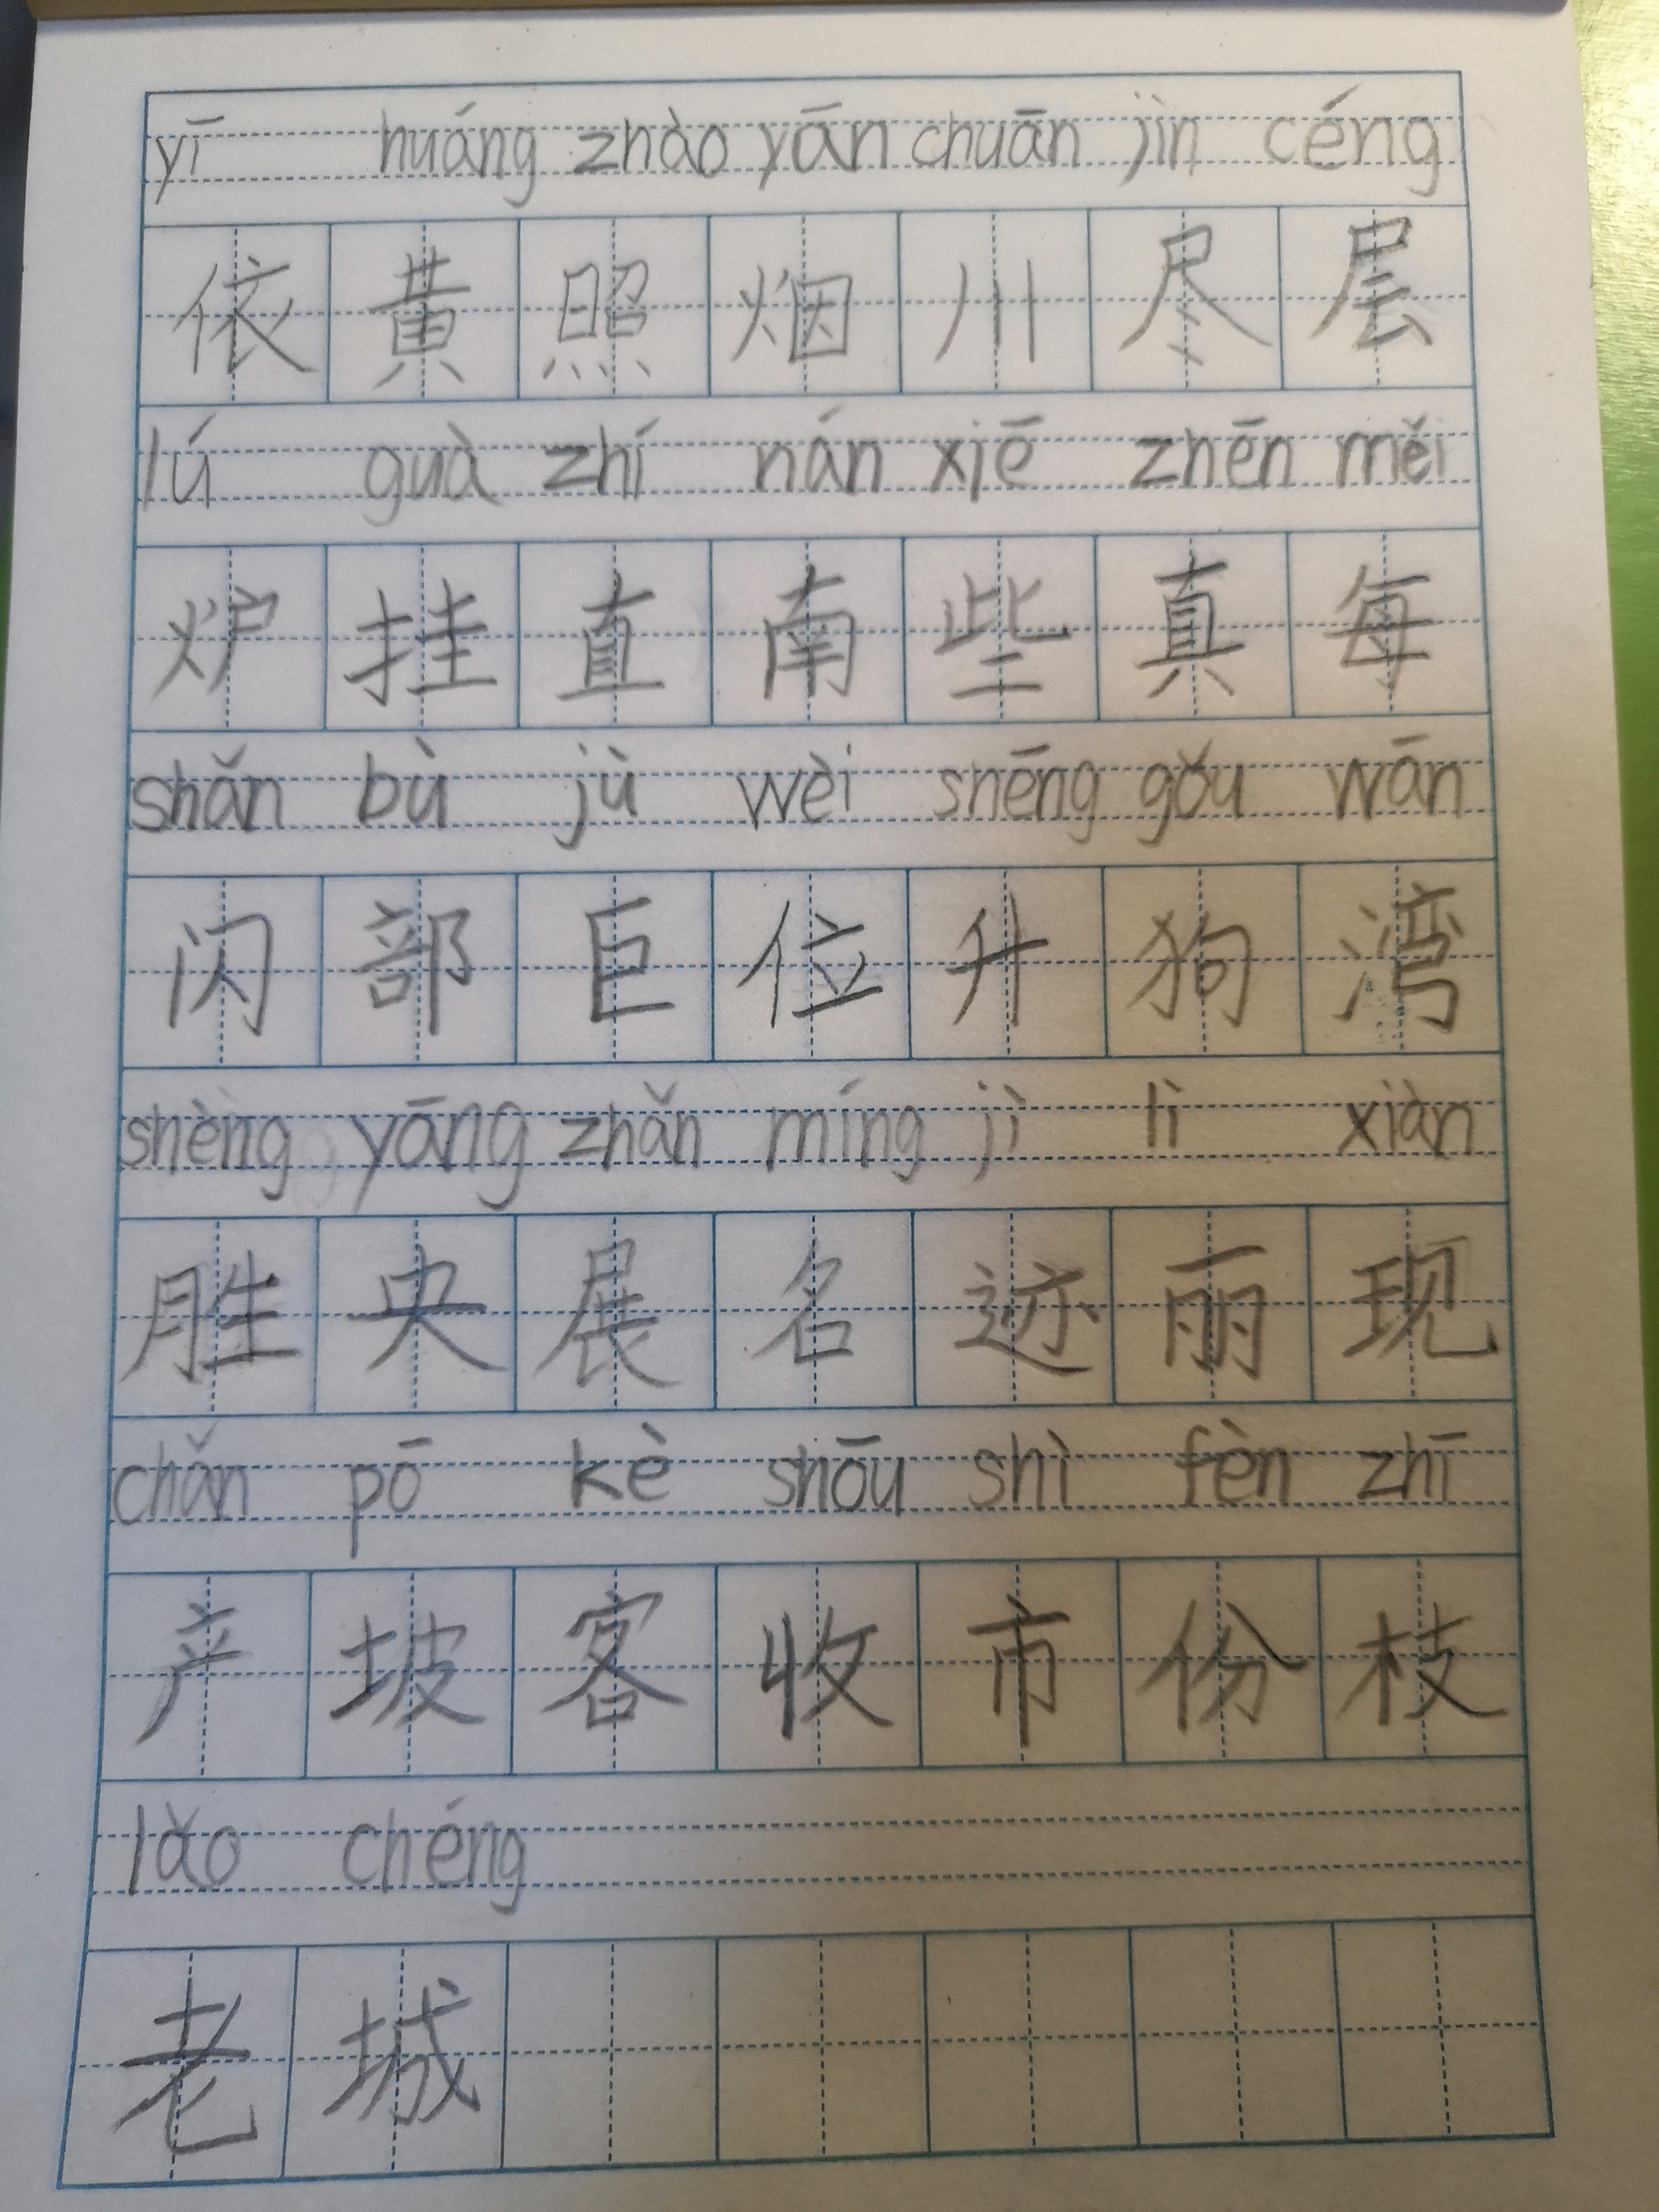 yī huáng zhào yān chuān jìn céng
依 黄 照 烟 川 尽 层
lú guà zhí nán xiē zhēn měi
炉 挂 直 南 些 真 每
shǎn bù jù wèi shēng gǒu wān
闪 部 巨 位 升 狗 湾
shèng yāng zhǎn míng jì lì xiàn
胜 央 展 名 迹 丽 现
chǎn pō kè shōu shì fèn zhī
产 坡 客 收 市 份 枝
lǎo chéng
老 城